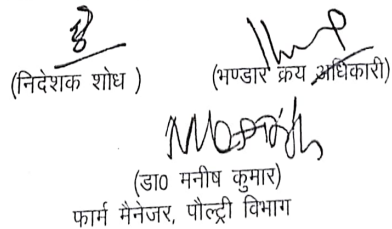 (निदेशक शोध ) (भण्डार क्रय अधिकारी)
(डा० मनीष कुमार)
फार्म मैनेजर, पौल्ट्री विभाग